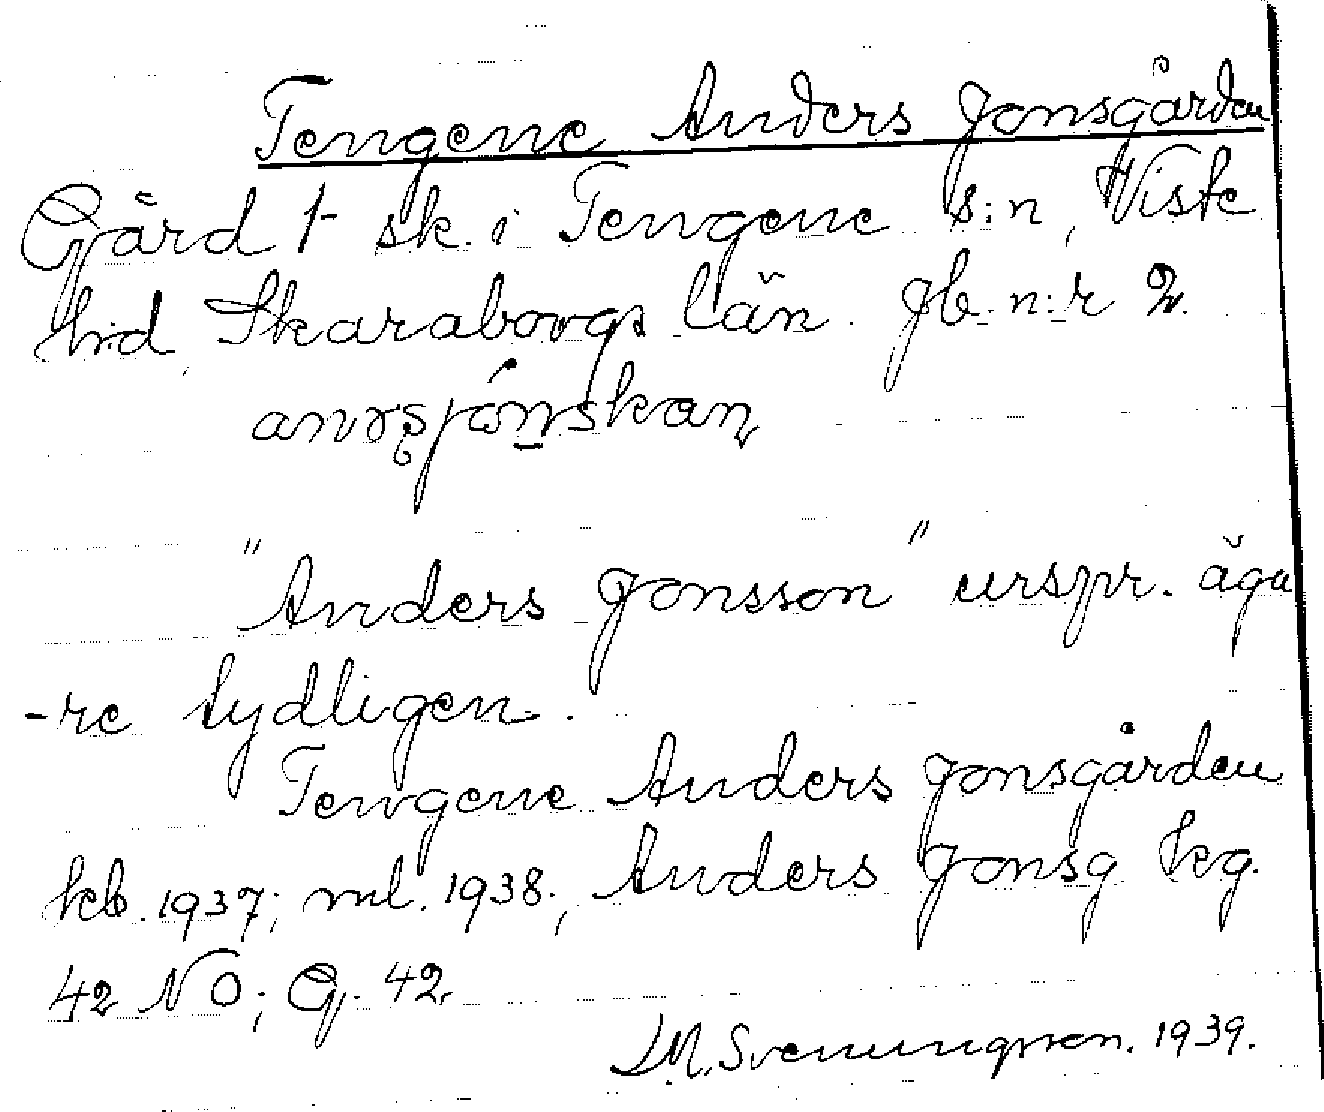 Tengene Anders Jonsgården
Gård 1 sk. i Tengene s:n, Viste
hrd, Skaraborgs län. Jb. n:r 2.

"Anders Jonsson" urspr. äga
-re tydligen.
Tengene Anders Jonsgården
kb. 1937; ml. 1938; Anders Jonsg kg.
42 NO; G. 42.
Svenungsson. 1939.